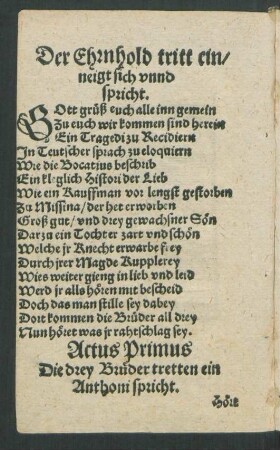 Der Ehrnhold tritt ein/
neigt sich vnnd
spricht.
GOtt grüß euch alle inn gemein
Zu euch wir kommen sind herein
Ein Tragedi zu Recidiern
In Teutscher sprach zu eloquiern
Wie die Bocatius beschrib
Ein kleglich Histori der Lieb
Wie ein Kauffman vor lengst gestorben
Zu Missina/ der het erworben
Groß gut/ vnd drey gewachsner Sön
Dar zu ein Tochter zart vnd schön
Welche jr Knecht erwarbe frey
Durch jrer Magde Kupplerey
Wies weiter gieng in lieb vnd leid
Werd jr alls hören mit bescheid
Doch das man stille sey dabey
Dort kommen die Brüder all drey
Nun höret was jr rahtschlag sey.
Actus Primus
Die drey Brüder tretten ein
Anthoni spricht.
Hört